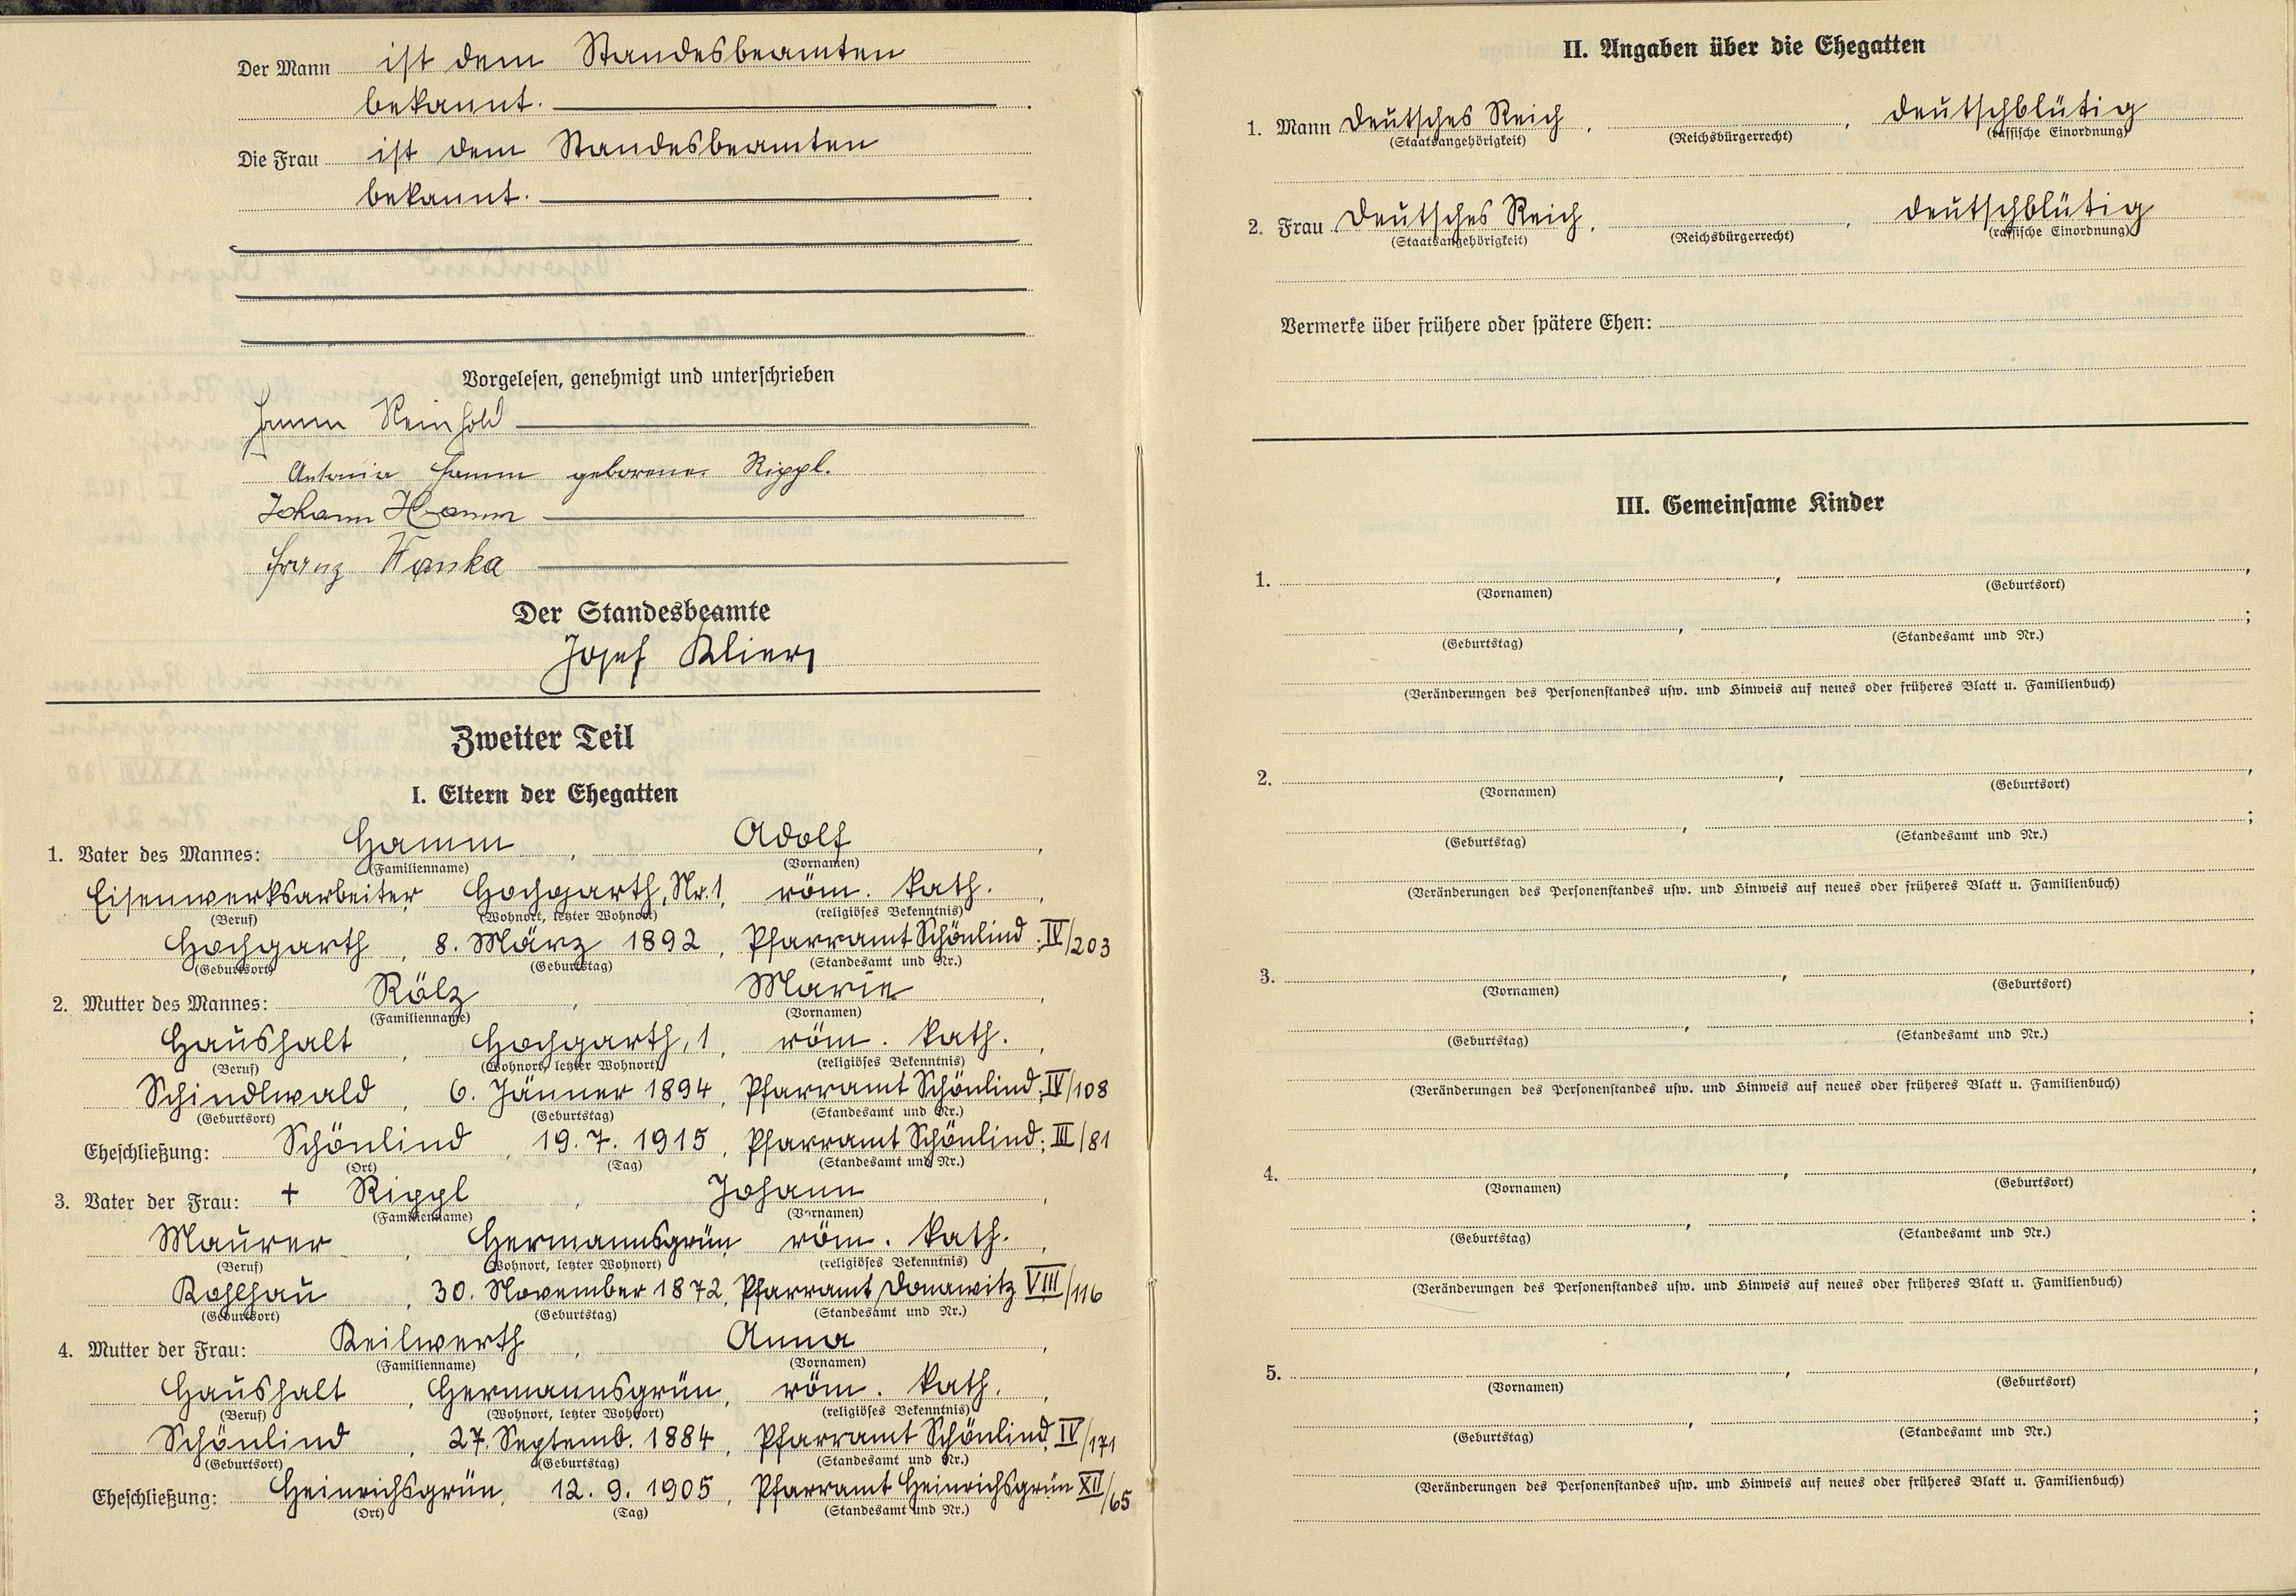 Der Mann ist dem Standesbeamten
bekannt.
Die Frau ist dem Standesbeamten
bekannt.
Vorgelesen, genehmigt und unterschrieben
Hamm Reinhold
Antonia Hamm geborene Rippl.
Johann Hamm
Franz Wanka
Der Standesbeamte
Josef Klier
Zweiter Teil
I. Eltern der Ehegatten
1. Vater des Mannes: Hamm, Adolf,
(Familienname) (Vornamen)
Eisenwerksarbeiter Hochgarth, Nr. 1, röm. kath.,
(Beruf) (Wohnort, letzter Wohnort) (religiöses Bekenntnis)
Hochgarth, 8. März 1892, Pfarramt Schönlind; IV/203
(Geburtsort) (Geburtstag) (Standesamt und Nr.)
2. Mutter des Mannes: Rölz, Marie,
(Familienname) (Vornamen)
Haushalt, Hochgarth, 1, röm. kath.,
(Beruf) (Wohnort, letzter Wohnort) (religiöses Bekenntnis)
Schindlwald, 6. Jänner 1894, Pfarramt Schönlind; IV/108
(Geburtsort) (Geburtstag) (Standesamt und Nr.)
Eheschließung: Schönlind, 19. 7. 1915, Pfarramt Schönlind; III/81
(Ort) (Tag) (Standesamt und Nr.)
3. Vater der Frau: + Rippl, Johann,
(Familienname) (Vornamen)
Maurer, Hermannsgrün, röm. kath.,
(Beruf) (Wohnort, letzter Wohnort) (religiöses Bekenntnis)
Kohlhau, 30. November 1872, Pfarramt Donawitz VIII/116
(Geburtsort) (Geburtstag) (Standesamt und Nr.)
4. Mutter der Frau: Keilwerth, Anna,
(Familienname) (Vornamen)
Haushalt, Hermannsgrün, röm. kath.,
(Beruf) (Wohnort, letzter Wohnort) (religiöses Bekenntnis)
Schönlind, 27. Septemb. 1884, Pfarramt Schönlind, IV/171
(Geburtsort) (Geburtstag) (Standesamt und Nr.)
Eheschließung: Heinrichsgrün, 12. 9. 1905, Pfarramt Heinrichsgrün XII/65
(Ort) (Tag) (Standesamt und Nr.)
II. Angaben über die Ehegatten
1. Mann Deutsches Reich, , deutschblütig
(Staatsangehörigkeit) (Reichsbürgerrecht) (rassische Einordnung)
2. Frau Deutsches Reich, , deutschblütig
(Staatsangehörigkeit) (Reichsbürgerrecht) (rassische Einordnung)
Vermerke über frühere oder spätere Ehen:
III. Gemeinsame Kinder
1. , ,
(Vornamen) (Geburtsort)
, ;
(Geburtstag) (Standesamt und Nr.)
(Veränderungen des Personenstandes usw. und Hinweis auf neues oder früheres Blatt u. Familienbuch)
2. , ,
(Vornamen) (Geburtsort)
, ;
(Geburtstag) (Standesamt und Nr.)
(Veränderungen des Personenstandes usw. und Hinweis auf neues oder früheres Blatt u. Familienbuch)
3. , ,
(Vornamen) (Geburtsort)
, ;
(Geburtstag) (Standesamt und Nr.)
(Veränderungen des Personenstandes usw. und Hinweis auf neues oder früheres Blatt u. Familienbuch)
4. , ,
(Vornamen) (Geburtsort)
, ;
(Geburtstag) (Standesamt und Nr.)
(Veränderungen des Personenstandes usw. und Hinweis auf neues oder früheres Blatt u. Familienbuch)
5. , ,
(Vornamen) (Geburtsort)
, ;
(Geburtstag) (Standesamt und Nr.)
(Veränderungen des Personenstandes usw. und Hinweis auf neues oder früheres Blatt u. Familienbuch)